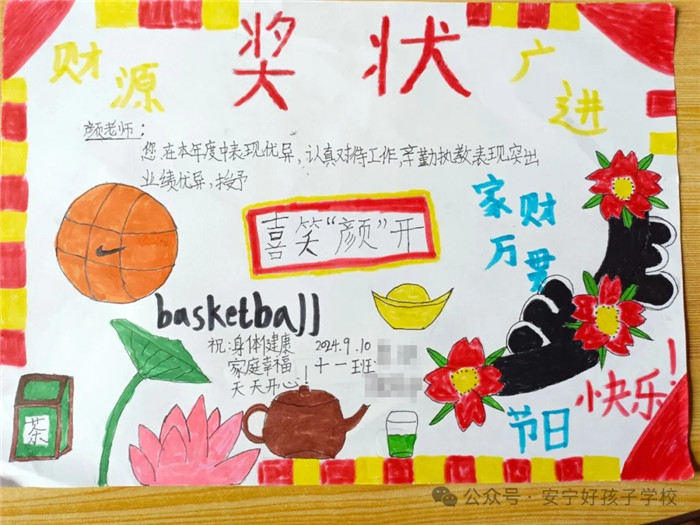 奖状
财源
广进
颜老师:
您在本年度中表现优异,认真对待工作,辛勤执教表现突出
业绩优异,授予
喜笑“颜”开
家财
万贯
basketball
祝:身体健康
家庭幸福
天天开心!
2024.9.10
十一班
茶
节日
快乐!
公众号·安宁好孩子学校